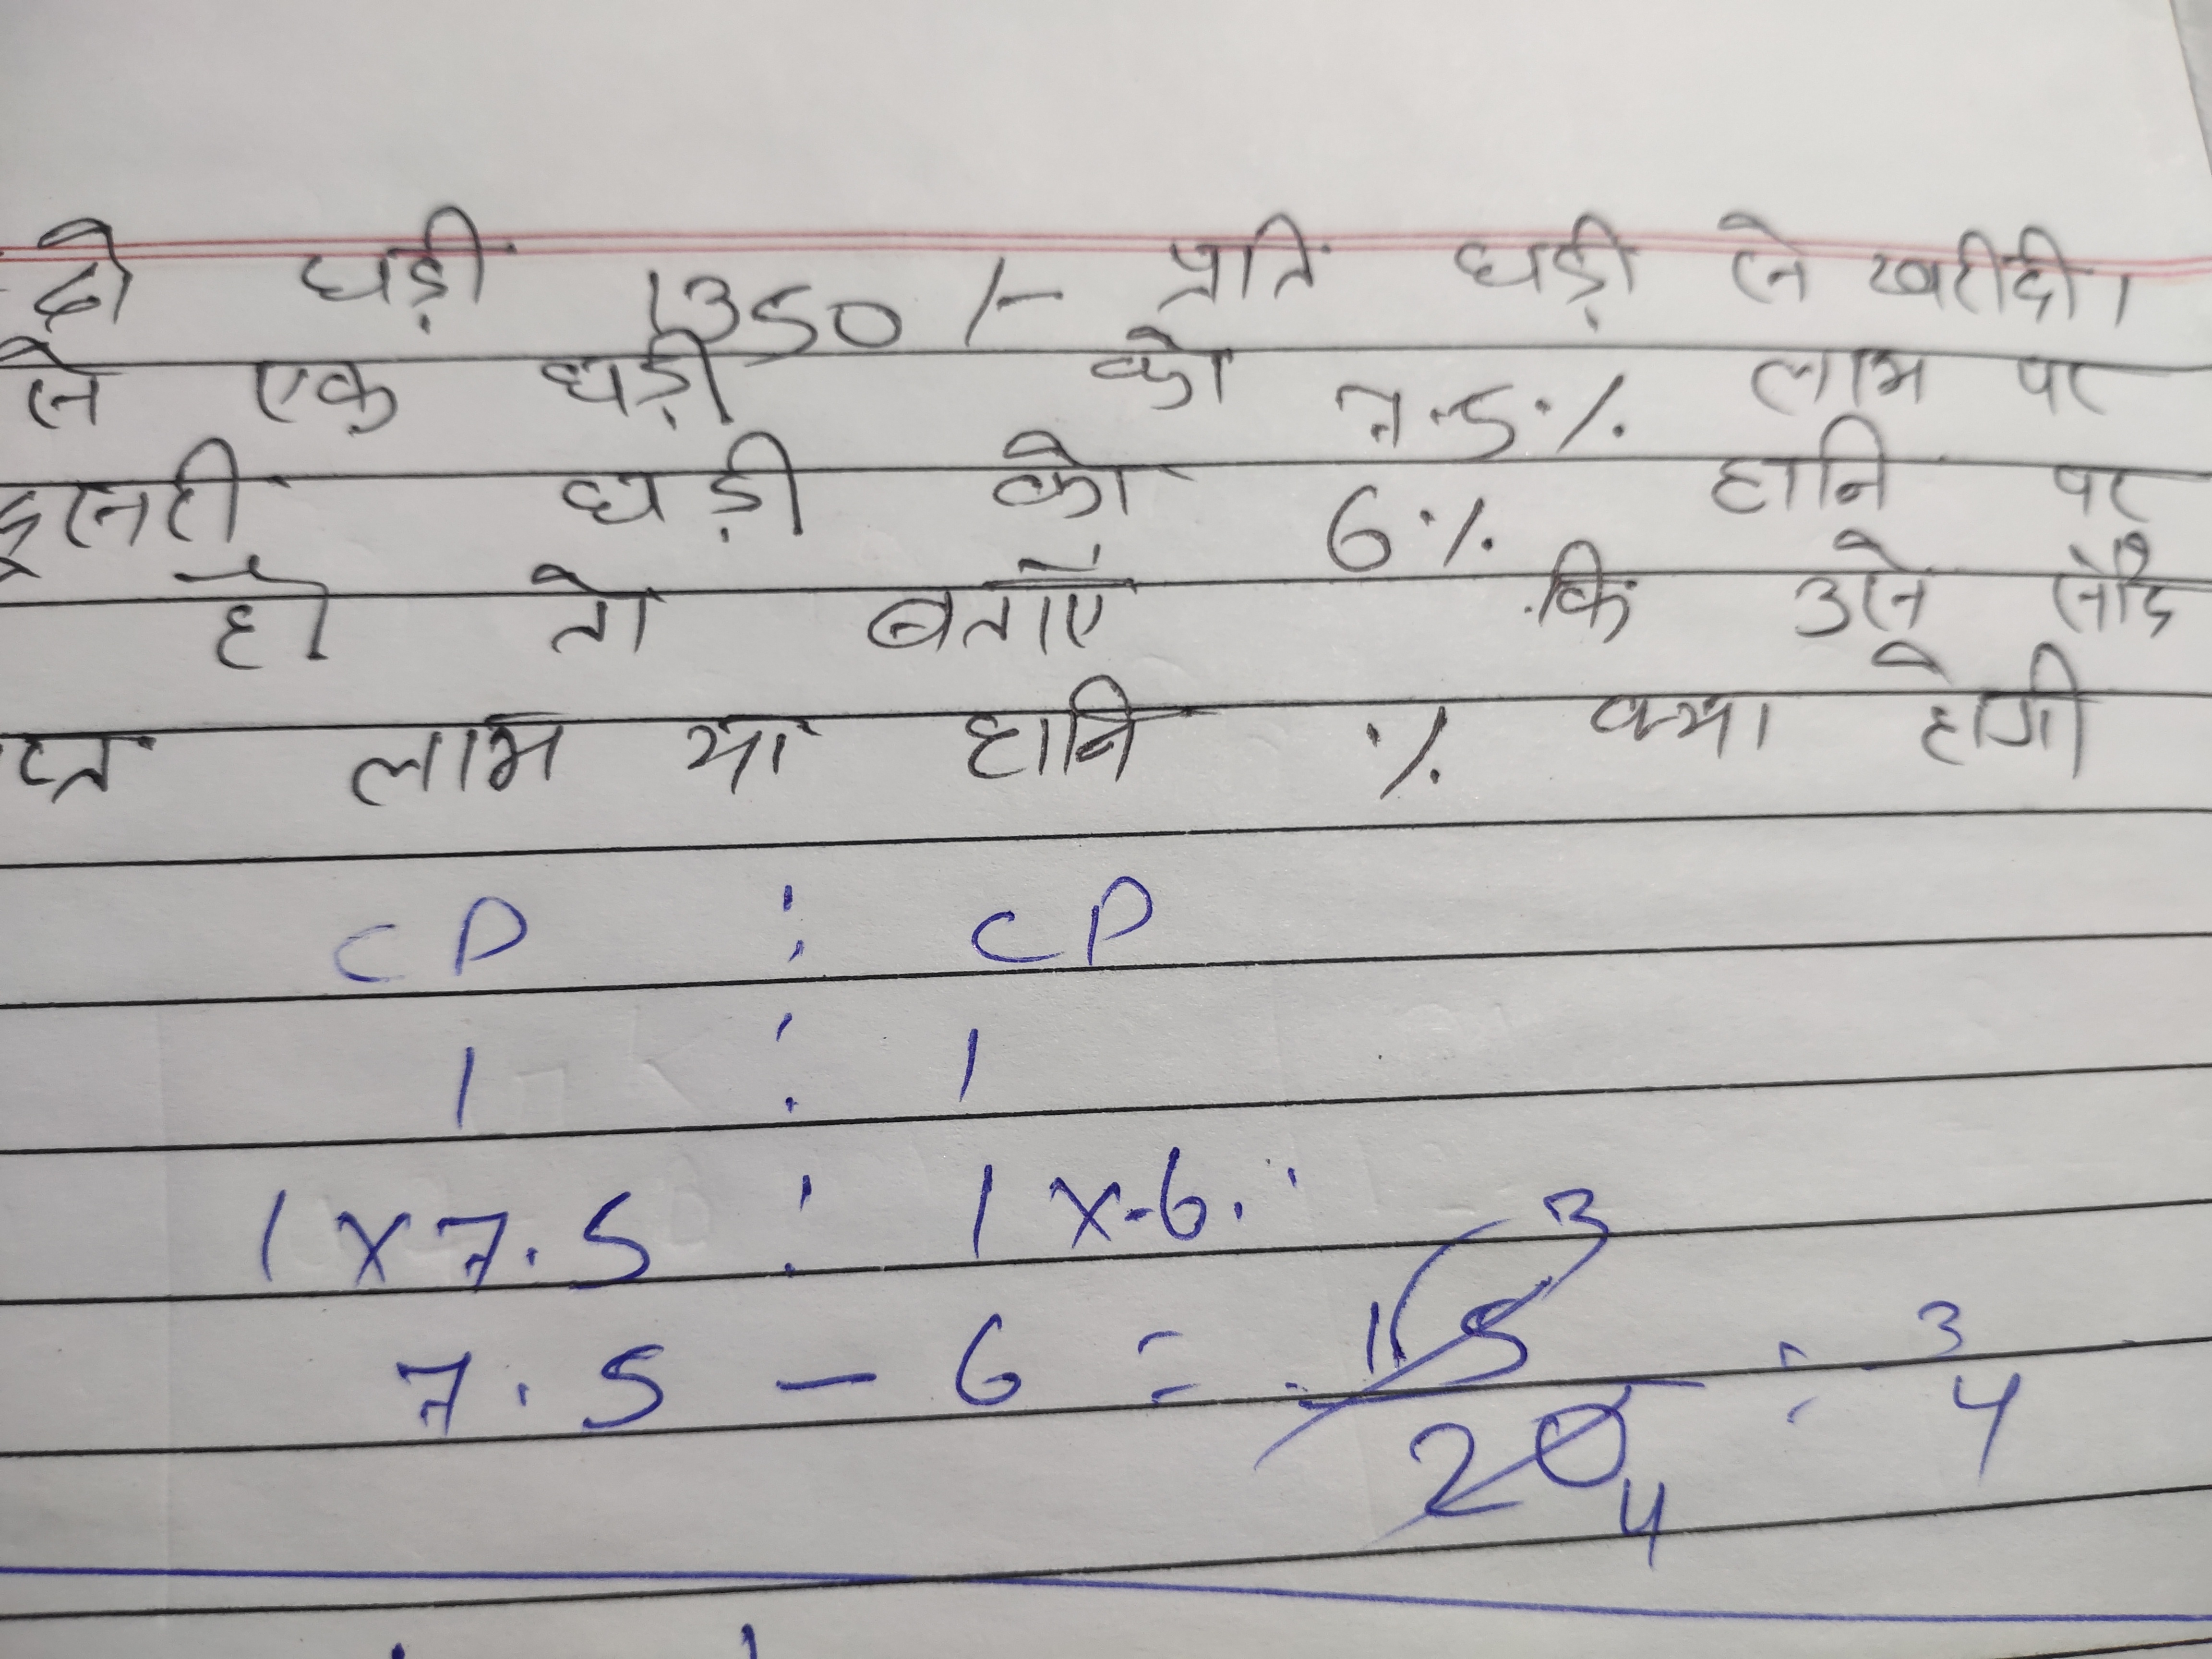 दो घड़ी 1350/- प्रति घड़ी से खरीदी।
एक घड़ी को 7.5% लाभ पर
दूसरी घड़ी को 6% हानि पर
हो तो बताएं कि उसे
लाभ या हानि % क्या होगी
CP : CP
1 : 1
1x7.5 : 1x6
7.5 - 6 = 15 3
20 4 : 3
4